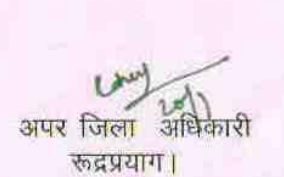 अपर जिला अधिकारी
रूद्रप्रयाग।